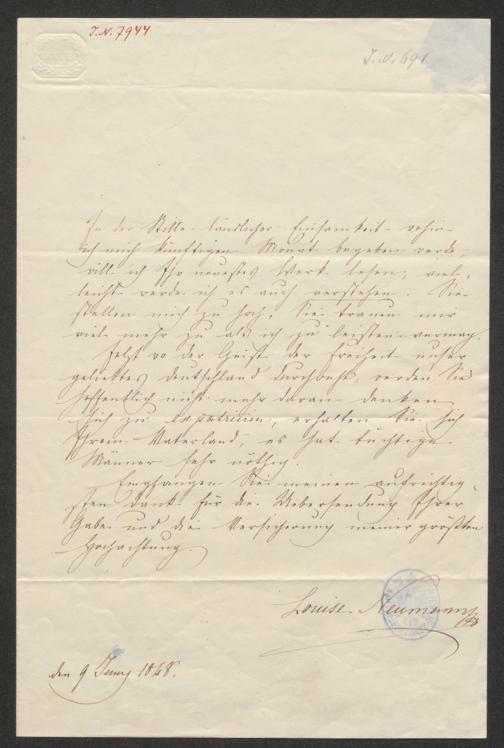 I.N. 7944
I.N. 691
In der Stille ländlicher Einsamkeit wohin
ich mich künftigen Monat begeben werde,
will ich Ihr neuestes Werk lesen, viel-
leicht werde ich es auch verstehen. Sie
stellen mich zu hoch, Sie trauen mir
viel mehr zu als ich zu leisten vermag.
Jetzt wo der Geist der Freiheit unser
geliebtes Deutschland durchweht, werden Sie
hoffentlich nicht mehr daran denken
sich zu expatriiren, erhalten Sie sich
Ihrem Vaterland, es hat tüchtige
Männer sehr nöthig.
Empfangen Sie meinen aufrichtig-
sten Dank für die Uebersendung Ihrer
Gabe und die Versicherung meiner größten
Hochachtung.
Louise Neumann
den 9 Juny 1848.